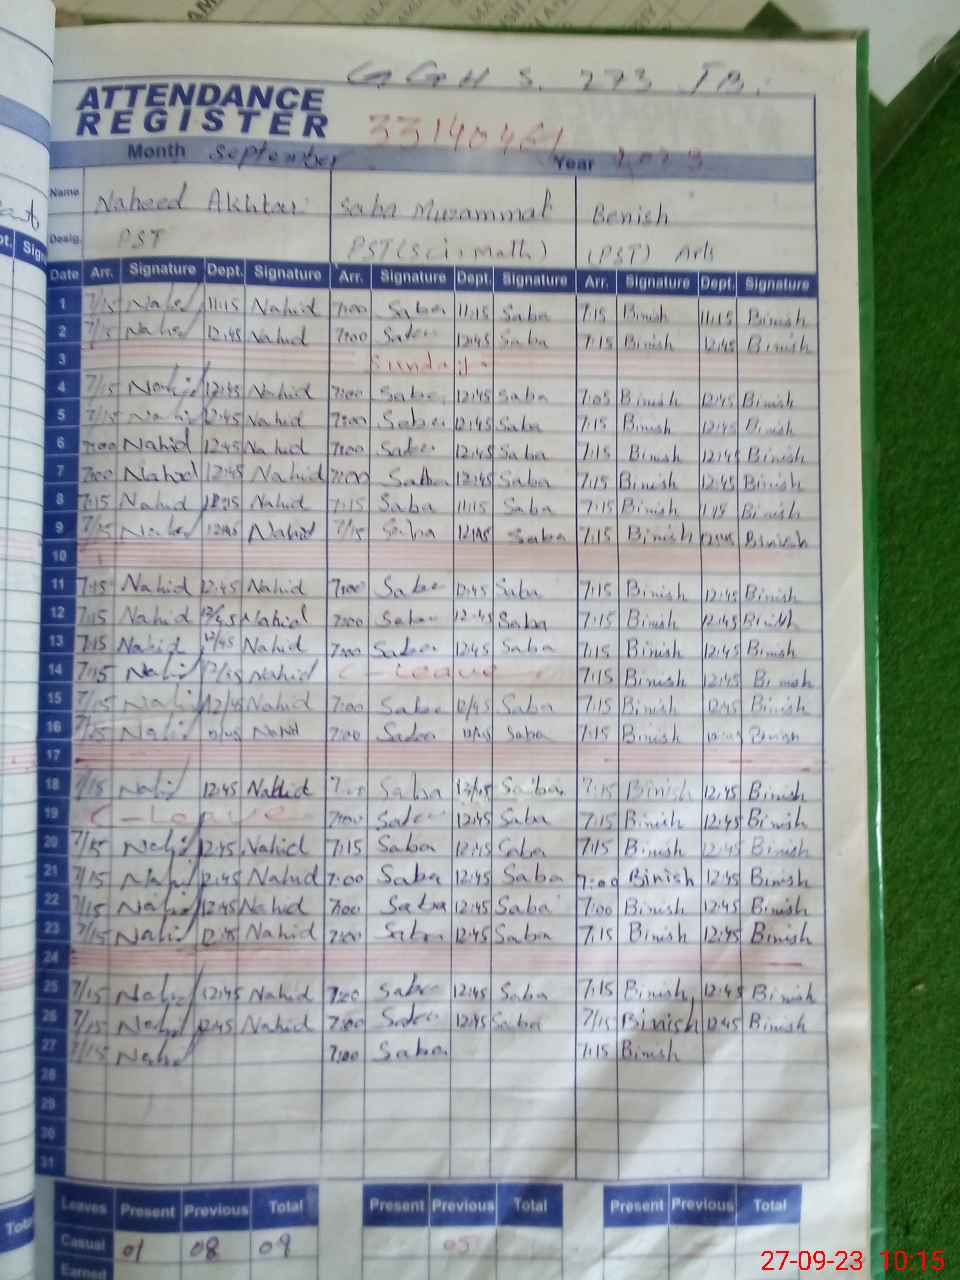 G G H S. 273 JB.
ATTENDANCE
REGISTER
33140461
Month September Year 2023
Name Naheed Akhtar Saba Muzammal Benish
Desig. PST PST (Sci-math) (PST) Arts
Date Arr. Signature Dept. Signature Arr. Signature Dept. Signature Arr. Signature Dept. Signature
1 7/15 Nahed 11:15 Nahid 7:00 Saba 11:15 Saba 7:15 Binish 11:15 Binish
2 7/15 Nahed 12:45 Nahid 7:00 Saba 12:45 Saba 7:15 Binish 12:45 Binish
3 Sunday
4 7/15 Nahid 12:45 Nahid 7:00 Saba 12:45 Saba 7:05 Binish 12:45 Binish
5 7/15 Nahid 12:45 Nahid 7:00 Saba 12:45 Saba 7:15 Binish 12:45 Binish
6 7:00 Nahid 12:45 Nahid 7:00 Saba 12:45 Saba 7:15 Binish 12:45 Binish
7 7:00 Nahed 12:45 Nahid 7:00 Saba 12:45 Saba 7:15 Binish 12:45 Binish
8 7:15 Nahid Nahid 7:15 Saba 11:15 Saba 7:15 Binish Binish
9 7/15 Nahed 12:45 Nahid 7/15 Saba 12:45 Saba 7:15 Binish 12:45 Binish
10
11 7:15 Nahid 12:45 Nahid 7:00 Saba 12:45 Saba 7:15 Binish 12:45 Binish
12 7:15 Nahid 12/45 Nahid 7:00 Saba 12:45 Saba 7:15 Binish 12:45 Binish
13 7:15 Nahid 12/45 Nahid 7:00 Saba 12:45 Saba 7:15 Binish 12:45 Binish
14 7/15 Nahid 12/45 Nahid C-Leave 7:15 Binish 12:45 Binish
15 7/15 Nahid 12/45 Nahid 7:00 Saba 12/45 Saba 7:15 Binish 12:45 Binish
16 7/15 Nahid 12/45 Nahid 7:00 Saba 12/45 Saba 7:15 Binish Binish
17
18 7/15 Nahid 12:45 Nahid Saba 12/45 Saiba 7:15 Binish 12:45 Binish
19 C-Leave 7:00 Saba 12:45 Saba 7:15 Binish 12:45 Binish
20 7/15 Nahid 12:45 Nahid 7:15 Saba 12:45 Saba 7:15 Binish 12:45 Binish
21 7/15 Nahid 12:45 Nahid 7:00 Saba 12:45 Saba 7:00 Binish 12:45 Binish
22 7/15 Nahid 12:45 Nahid 7:00 Saba 12:45 Saba 7:00 Binish 12:45 Binish
23 7/15 Nahid 12:45 Nahid 7:00 Saba 12:45 Saba 7:15 Binish 12:45 Binish
24
25 7/15 Nahid 12:45 Nahid 7:00 Saba 12:45 Saba 7:15 Binish 12:45 Binish
26 7/15 Nahid 12:45 Nahid 7:00 Saba 12:45 Saba 7/15 Binish 12:45 Binish
27 7/15 Nahid 7:00 Saba 7:15 Binish
28
29
30
31
Leaves Present Previous Total Present Previous Total Present Previous Total
Casual 01 08 09 05
Earned
27-09-23 10:15